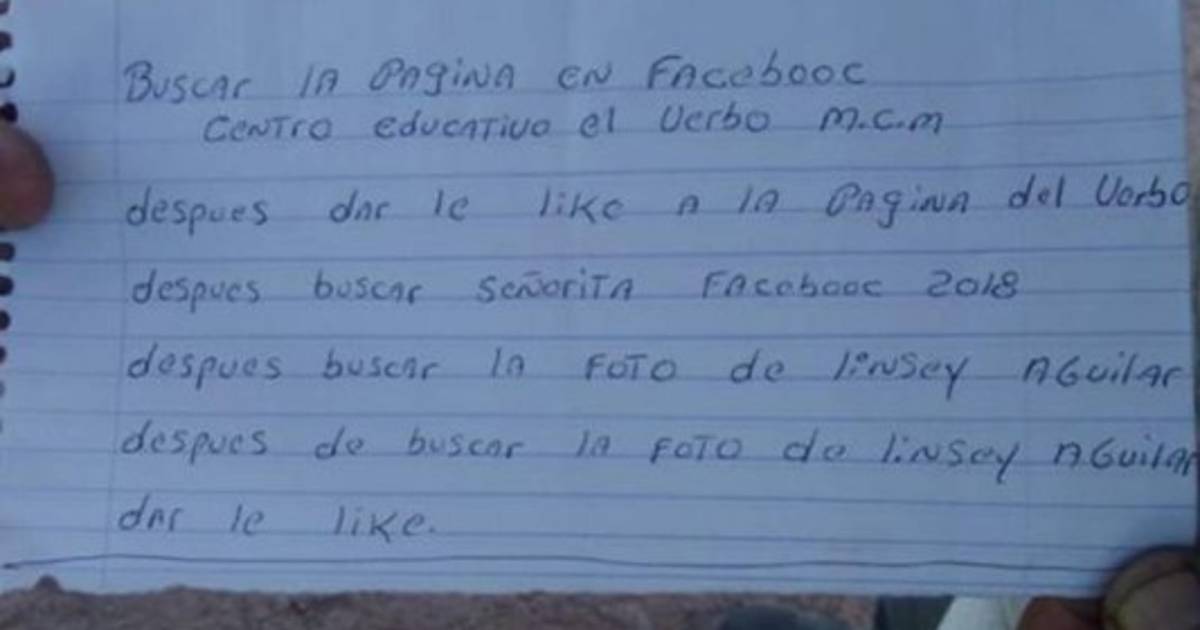 Buscar la Pagina en Facebooc
Centro educativo el Verbo M.C.M
despues dar le like a la Pagina del Verbo
despues buscar señorita Facebooc 2018
despues buscar la foto de linsey Aguilar
despues de buscar la foto de linsey Aguilar
dar le like.